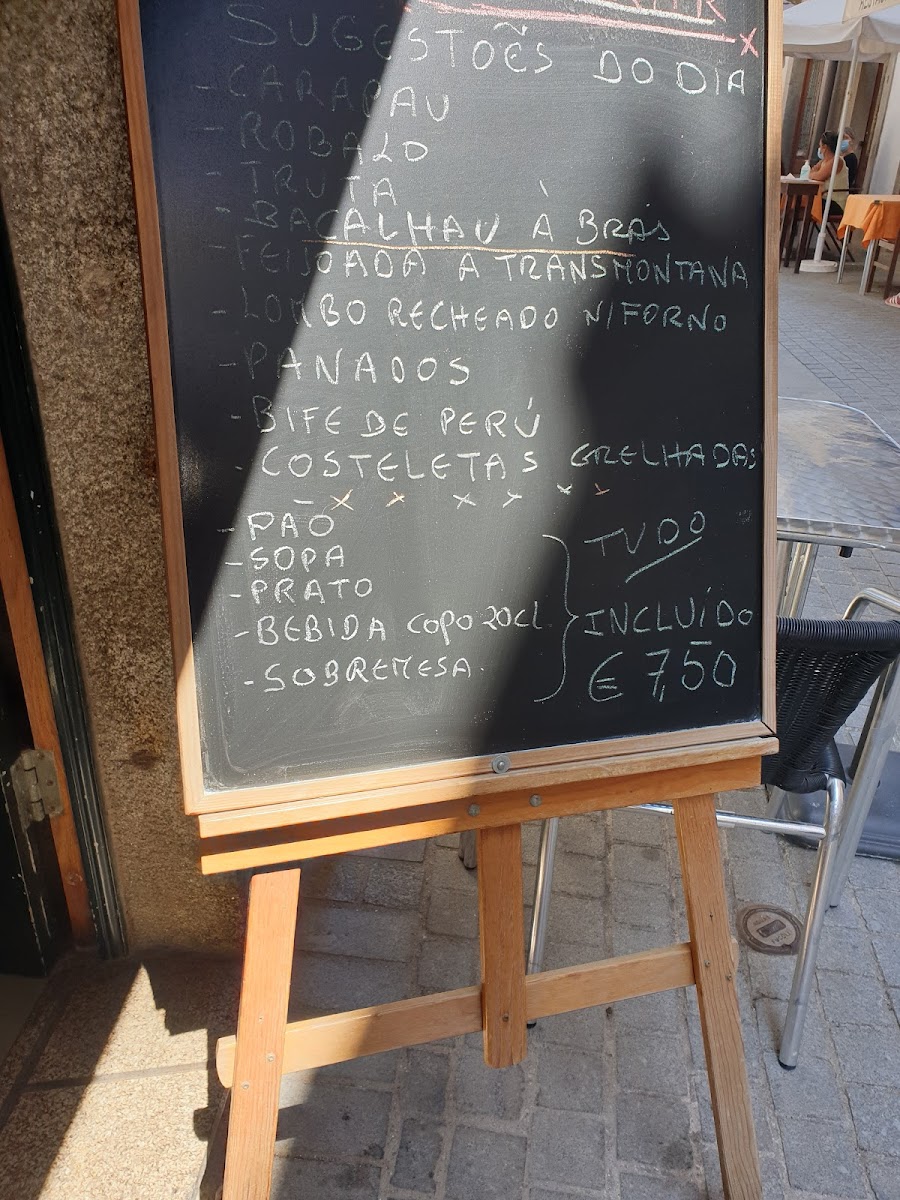 SUGESTOẼS DO DIA
- CARAPAU
- ROBALO
- TRUTA
- BACALHAU À BRÁS
- FEIJOADA A TRANSMONTANA
- LOMBO RECHEADO N/FORNO
- PANADOS
- BIFE DE PERÚ
- COSTELETAS GRELHADAS
- PÃO
- SOPA
- PRATO
- BEBIDA COPO 20CL
- SOBREMESA.
TUDO
INCLUÍDO
€ 7,50